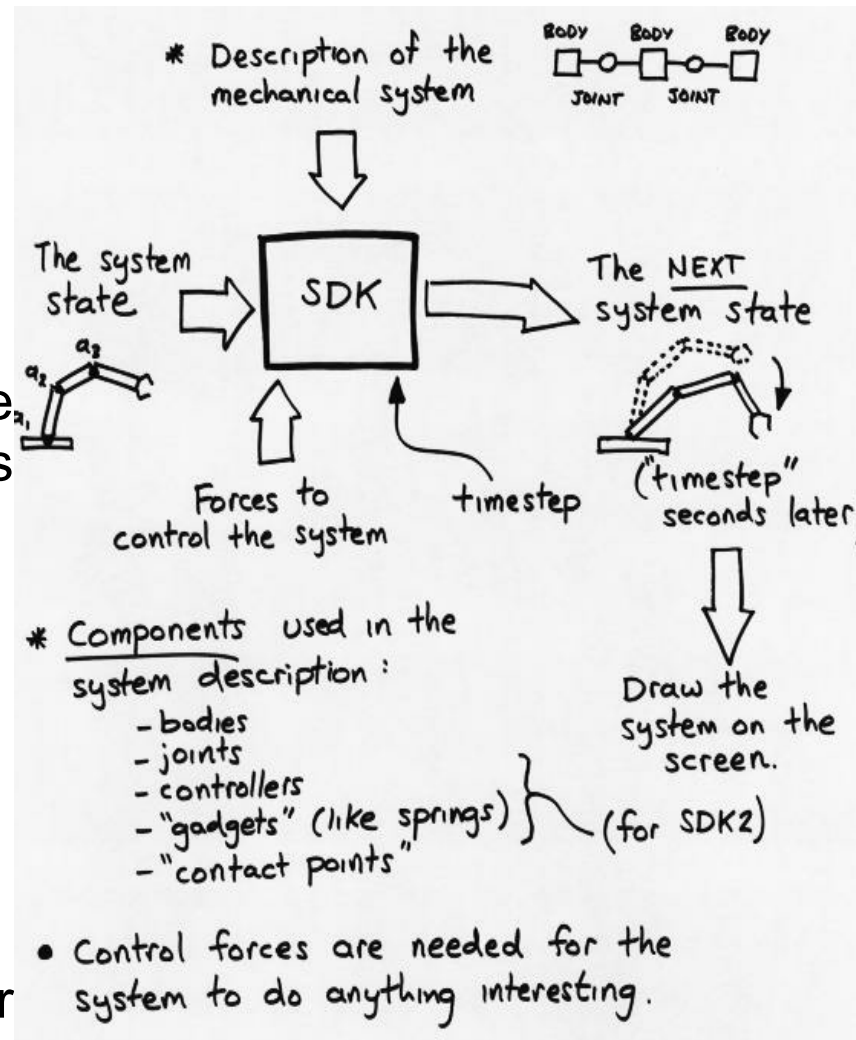 * Description of the
mechanical system
BODY BODY BODY
JOINT JOINT
The system
state
SDK
The NEXT
system state
a₁ a₂ a₃
Forces to
control the system
timestep
("timestep"
seconds later
* Components used in the
system description:
- bodies
- joints
- controllers
- "gadgets" (like springs)
- "contact points"
(for SDK2)
Draw the
system on the
screen.
• Control forces are needed for the
system to do anything interesting.
e
s
r